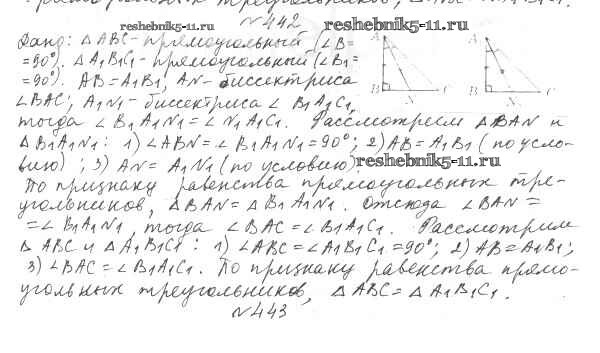 прямоугольных треугольников,
№442
reshebnik5-11.ru
reshebnik5-11.ru
Дано: △ABC - прямоугольный (∠B=
=90°). △A₁B₁C₁ - прямоугольный (∠B₁=
=90°). AB=A₁B₁, AN - биссектриса
∠BAC; A₁N₁ - биссектриса ∠B₁A₁C₁,
тогда ∠B₁A₁N₁=∠N₁A₁C₁. Рассмотрем △BAN и
△B₁A₁N₁: 1) ∠ABN=∠B₁A₁N₁=90°; 2) AB=A₁B₁ (по усло-
вию) ; 3) AN=A₁N₁ (по условию).
reshebnik5-11.ru
По признаку равенства прямоугольных тре-
угольников, △BAN=△B₁A₁N₁. Отсюда ∠BAN=
=∠B₁A₁N₁, тогда ∠BAC=∠B₁A₁C₁. Рассмотрим
△ABC и △A₁B₁C₁: 1) ∠ABC=∠A₁B₁C₁=90°; 2) AB=A₁B₁;
3) ∠BAC=∠B₁A₁C₁. По признаку равенства прямо-
угольных треугольников, △ABC=△A₁B₁C₁.
№443
A
B
N
C
A
B
N
C